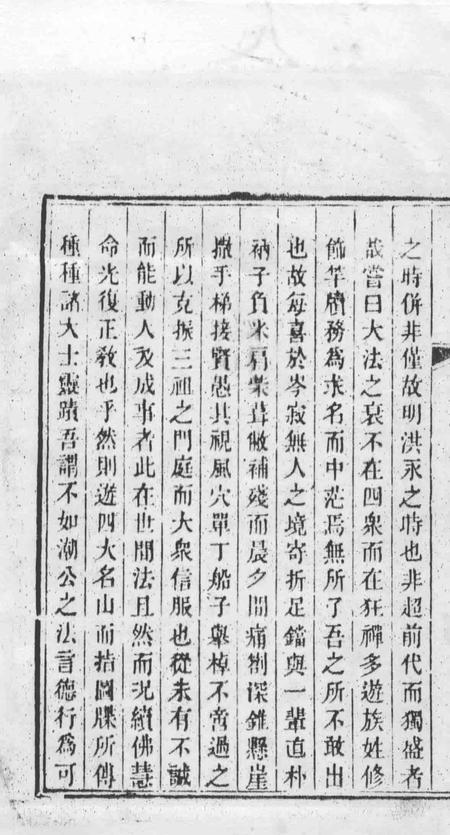 之時併非僅故明洪永之時也非超前代而獨盛者
哉嘗曰大法之衰不在四衆而在狂禪多遊族姓修
飾竿牘務為求名而中茫焉無所了吾之所不敢出
也故每喜於岑寂無人之境寄折足鐺與一輩直朴
衲子負米肩柴葺敝補殘而晨夕間痛劄深錐懸崖
撒手梯接賢愚其視風穴單丁船子舉棹不啻過之
所以克振三祖之門庭而大衆信服也從未有不誠
而能動人及成事者此在世間法且然而况續佛慧
命光復正教也乎然則遊四大名山而指圖牒所傳
種種諸大士靈蹟吾謂不如潮公之法言德行為可